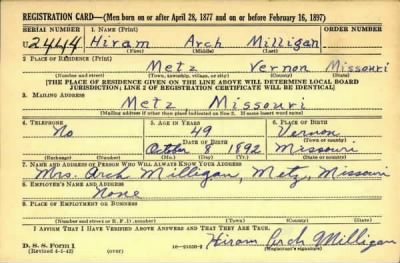 REGISTRATION CARD—(Men born on or after April 28, 1877 and on or before February 16, 1897)
SERIAL NUMBER 1. NAME (Print) ORDER NUMBER
U 2444 Hiram Arch Milligan
(First) (Middle) (Last)
2. PLACE OF RESIDENCE (Print)
Metz Vernon Missouri
(Number and street) (Town, township, village, or city) (County) (State)
[THE PLACE OF RESIDENCE GIVEN ON THE LINE ABOVE WILL DETERMINE LOCAL BOARD
JURISDICTION; LINE 2 OF REGISTRATION CERTIFICATE WILL BE IDENTICAL]
3. MAILING ADDRESS
Metz Missouri
[Mailing address if other than place indicated on line 2. If same insert word same]
4. TELEPHONE 5. AGE IN YEARS 6. PLACE OF BIRTH
No 49 Vernon
DATE OF BIRTH (Town or county)
October 8 1892 Missouri
(Exchange) (Number) (Mo.) (Day) (Yr.) (State or country)
7. NAME AND ADDRESS OF PERSON WHO WILL ALWAYS KNOW YOUR ADDRESS
Mrs. Arch Milligan, Metz, Missouri
8. EMPLOYER'S NAME AND ADDRESS
None
9. PLACE OF EMPLOYMENT OR BUSINESS
(Number and street or R. F. D. number) (Town) (County) (State)
I AFFIRM THAT I HAVE VERIFIED ABOVE ANSWERS AND THAT THEY ARE TRUE.
D. S. S. Form 1 Hiram Arch Milligan
(Revised 4-1-42) (over) (Registrant's signature)